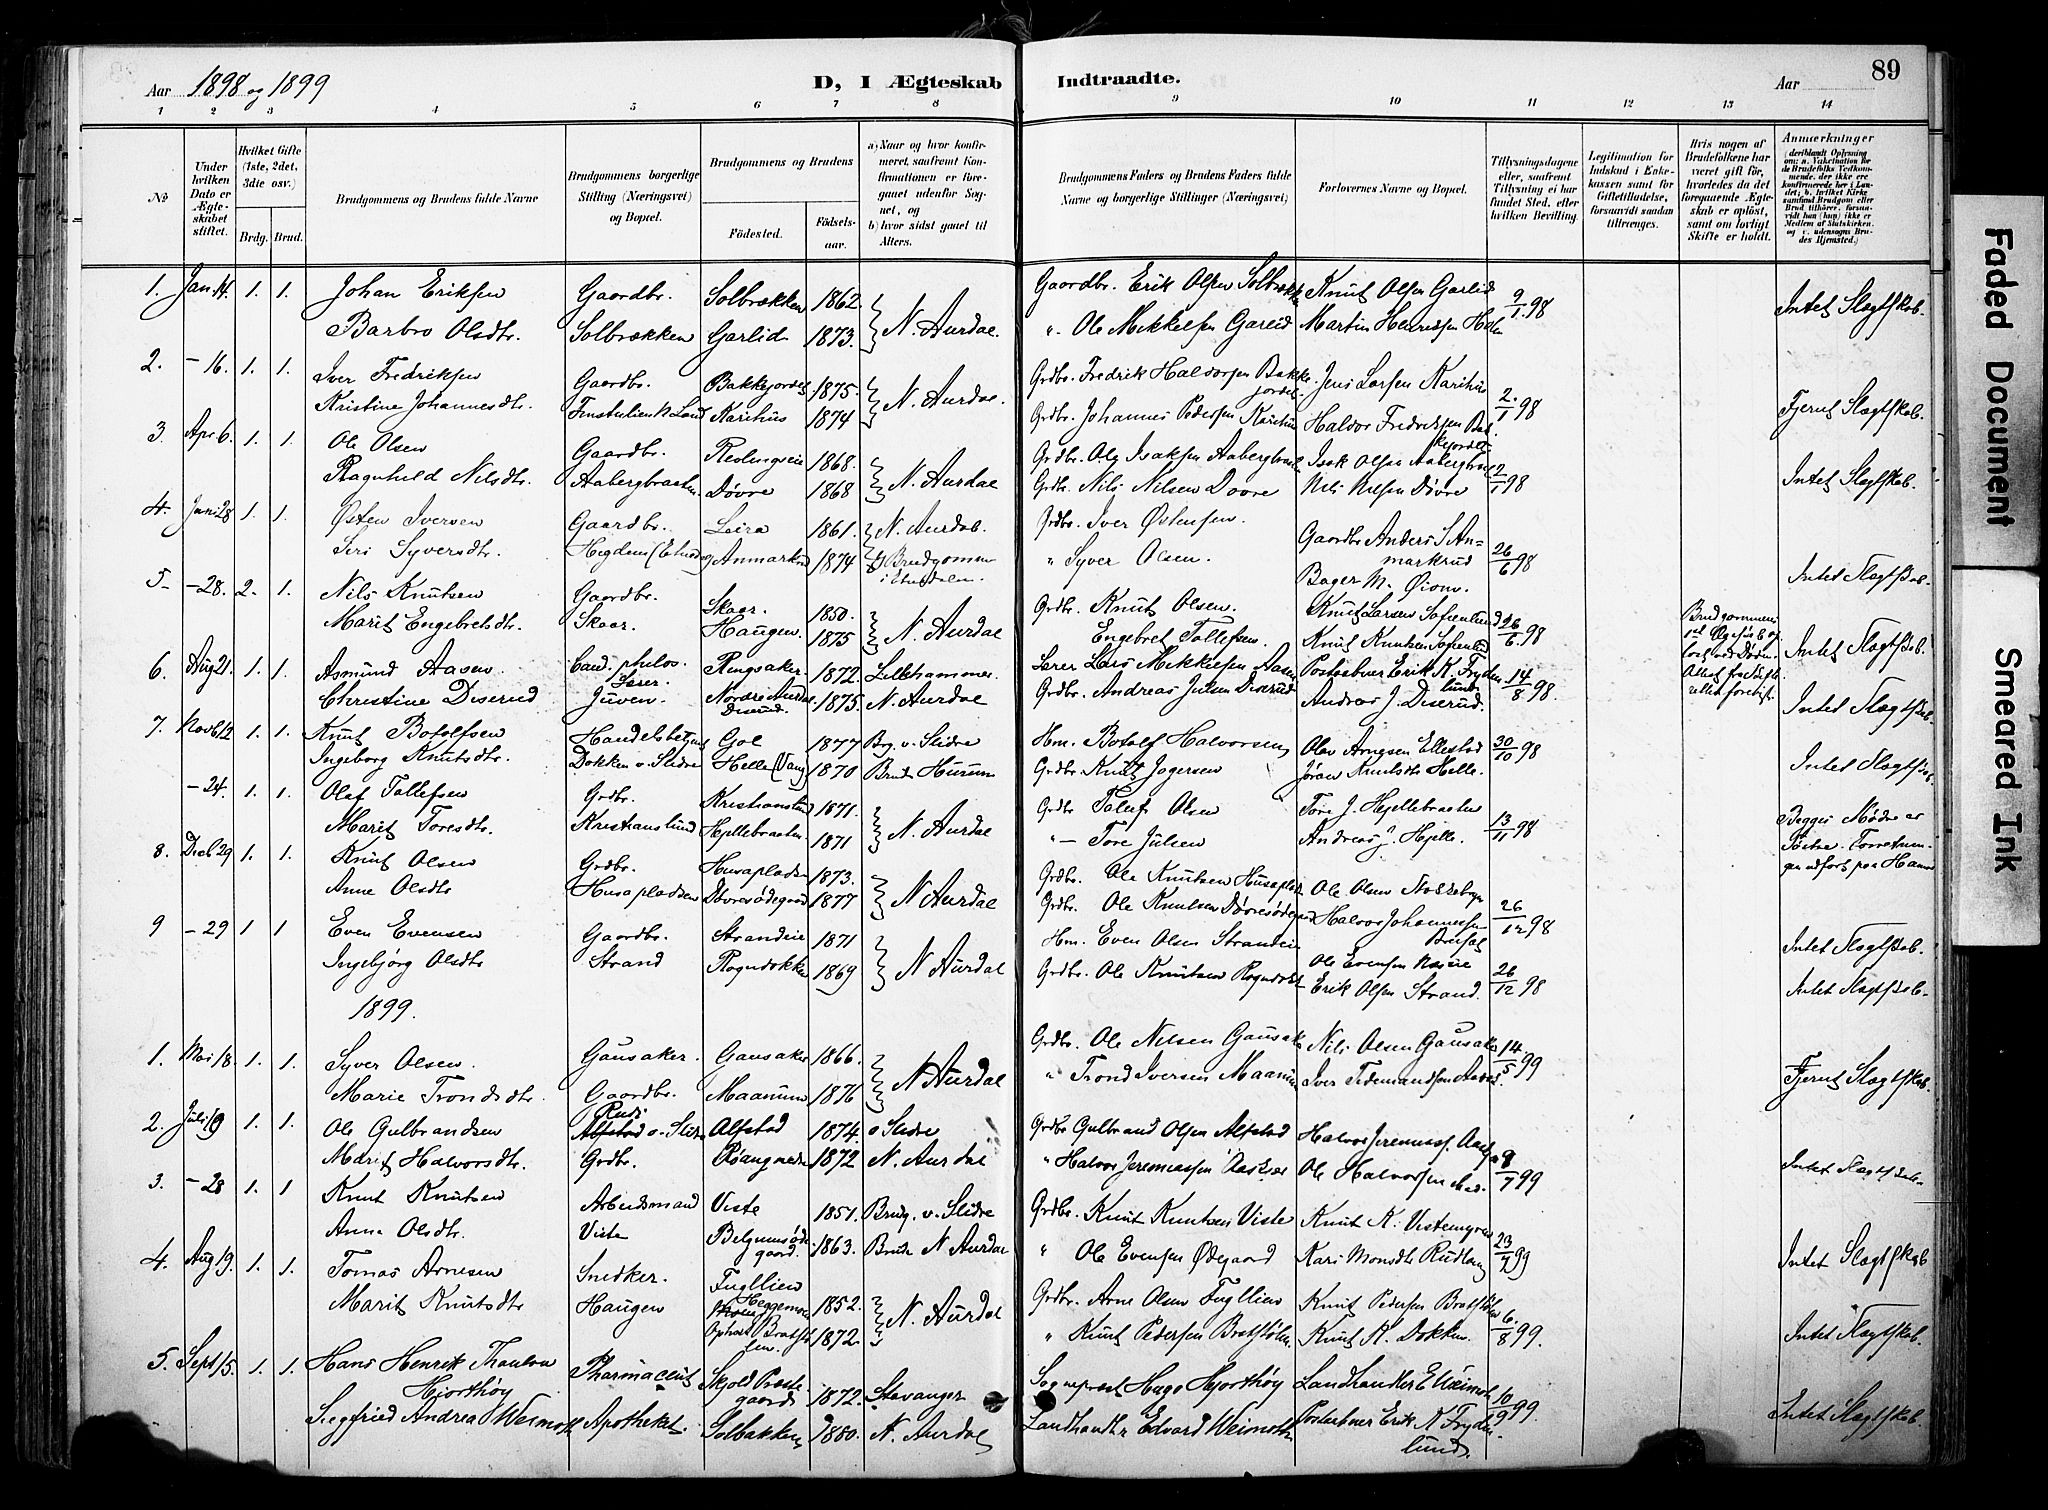 Aar 1898 og 1899
D, I Ægteskab Indtraadte.
Aar
89
1 2 3 4 5 6 7 8 9 10 11 12 13 14
No
Under hvilken Dato er Ægteskabet stiftet.
Hvilket Gifte (1ste, 2det, 3die osv.)
Brdg. Brud.
Brudgommens og Brudens fulde Navne
Brudgommens borgerlige Stilling (Næringsvei) og Bopæl.
Brudgommens og Brudens
Fødested. Fødselsaar.
a) Naar og hvor konfirmeret, saafremt Konfirmationen er foregaaet udenfor Sognet, og
b) hvor sidst gaaet til Alters.
Brudgommens Faders og Brudens Faders fulde Navne og borgerlige Stillinger (Næringsvei)
Forlovernes Navne og Bopæl.
Tillysningsdagene eller, saafremt Tillysning ei har fundet Sted, efter hvilken Bevilling.
Legitimation for Indskud i Enkekassen samt for Giftetilladelse, forsaavidt saadan tiltrænges.
Hvis nogen af Brudefolkene har været gift før, hvorledes da det foregaaende Ægteskab er opløst, samt om lovligt Skifte er holdt.
Anmerkninger
1. Jan. 14. 1. 1. Johan Eriksen Gaardbr. Solbrækken 1862 N. Aurdal. Gaardbr. Erik Olsen Solbrækk Knut Olsen Garlid 9/1 98 Intet Slægtskab.
Barbro Olsdtr. Solbrækken Garlid 1873. " Ole Mikkelsen Garlid Martin Henriksen
2. - 16. 1. 1. Iver Fredriksen Gaardbr. Bakkejordet 1875. N. Aurdal. Grdbr. Fredrik Haldorsen Bakkejordet Jens Larsen Karihus 2/1 98 Fjernt Slægtskab.
Kristine Johannesdtr. N Land Karihus 1874 Grdbr. Johannes Pedersen Karihus Haldor Fredriksen Bakkejordet
3. Apr 6. 1. 1. Ole Olsen Gaardbr. 1868. N. Aurdal Grdbr. Ole Isaksen Aabergbraat Isak Olsen Aabergbraat 2/1 98 Intet Slægtskab.
Ragnhild Nilsdtr. Aabergbraaten Døvre 1868 Grdbr. Nils Nilsen Dovre Nils Nilsen Døvre
4. Juni 28 1. 1. Østen Iversen Gaardbr. Leira 1861. N. Aurdal. Grdbr. Iver Østensen. Gaardbr Anders S. Anmarkrud 26/6 98 Intet Slægtskab.
Siri Syversdtr. Higdem Anmarkrud 1874 Brudgommen i Etnedalen. " Syver Olsen. Bager M. Øiom.
5. - 28. 2. 1. Nils Knutsen Gaardbr. Skaar. 1850. N. Aurdal Grdbr. Knut Olsen. Knut Larsen Sofienlund 26/6 98 Intet Slægtskab.
Marit Engebretsdtr. Skaar. Haugen. 1875 Engebret Tollefsen. Knut Knutsen Sofienlund
6. Aug 21. 1. 1. Asmund Aasen Cand. philos. Lærer. Ringsaker 1872. Lillehammer. Lærer Lars Mikkelsen Aasen Postaabner Erik K. Frydenlund 14/8 98. Intet Slægtskab.
Christine Diserud Juven. Nordre Aurdal Diserud. 1875. N. Aurdal Grdbr. Andreas Julsen Diserud Andreas J. Diserud.
7. Novb 12 1. 1. Knut Botolfsen Gol 1877 Brg. v. Slidre Hm. Botolf Halvorsen Olav Arnesen Ellestad 30/10 98 Intet Slægtskab.
Ingeborg Knutsdtr. Dokken v. Slidre Helle (Vang) 1870 Brud Hurum Grdbr. Knut Jøgersen Jøran Knutsdtr Helle.
- 24. 1. 1. Olaf Tollefsen Grdbr. Kristianslund 1871. N. Aurdal Grdbr Tollef Olsen Tore J. Hjellebraaten 13/11 98 Begges Mødre er Søstre.
Marit Toresdtr. Kristianslund Hjellebraaten 1871 " - Tore Julsen Andreas J. Hjelle.
8. Decb 29 1. 1. Knut Olsen Grdbr. Husapladsen 1873. N. Aurdal Grdbr. Ole Knutsen Husaplads Ole Olsen 26/12 98 Intet Slægtskab.
Anne Olsdtr Husapladsen Døvresødegaard 1877 Grdbr. Ole Knutsen Døvresødegaard Halvor Johannessen
9 - 29 1 1 Even Evensen Gaardbr. Strandeie 1871 N Aurdal Hm. Even Olsen Strandeie Ole Evensen 26/12 98 Intet Slægtskab.
Ingebjørg Olsdtr Strand Rogndokken 1869 Grdbr. Ole Knutsen Rogndokk Erik Olsen Strand.
1899.
1. Mai 18. 1. 1. Syver Olsen. Gausaker. Gausaker 1866. N Aurdal Grdbr. Ole Nilsen Gausak Nils Olsen Gausaker 14/5 99 Fjernt Slægtskab.
Marie Trondsdtr. Gaardbr. Maanum 1876 " Trond Iversen Maanum Iver Tidemandsen
2. Juli 9 1. 1. Ole Gulbrandsen Alfstad v. Slidre Alfstad 1874. v Slidre Grdbr Gulbrand Olsen Alfstad Halvor Jeremiass. 9/7 99 Intet Slægtskab.
Marit Halvorsdtr. Grdbr. 1872 N. Aurdal " Halvor Jeremiassen Ole Halvorsen
3. - 28 1. 1 Knut Knutsen Arbeidsmand Viste 1851. Brudg. v. Slidre Grdbr. Knut Knutsen Viste Knut K. Vistemyren 23/7 99 Intet Slægtskab
Anne Olsdtr. Viste Belgumsødegaard. 1863. Brud N Aurdal " Ole Evensen Ødegaard Kari Monsdtr
4. Aug 19. 1. 1. Tomas Arnesen Snedker. Fugllien 1852. N. Aurdal Grdbr. Arne Olsen Fugllien Knut Pedersen Bratstølen 6/8 99. Intet Slægtskab.
Marit Knutsdtr Haugen 1872. " Knut Pedersen Bratstølen Knut K. Dokken.
5. Sept 15. 1. 1. Hans Henrik Thaulow Hjorthøy Pharmaceut Skjold Prestegaard 1872. Stavanger Sogneprest Hago Hjorthøy Landhandler E Weinoth 10/9 99. Intet Slægtskab.
Siegfried Andrea Apotheket. Solbakken 1880. N. Aurdal Landhandlr Edvard Postaabner Erik K Frydenlund.
Faded Document
Smeared Ink